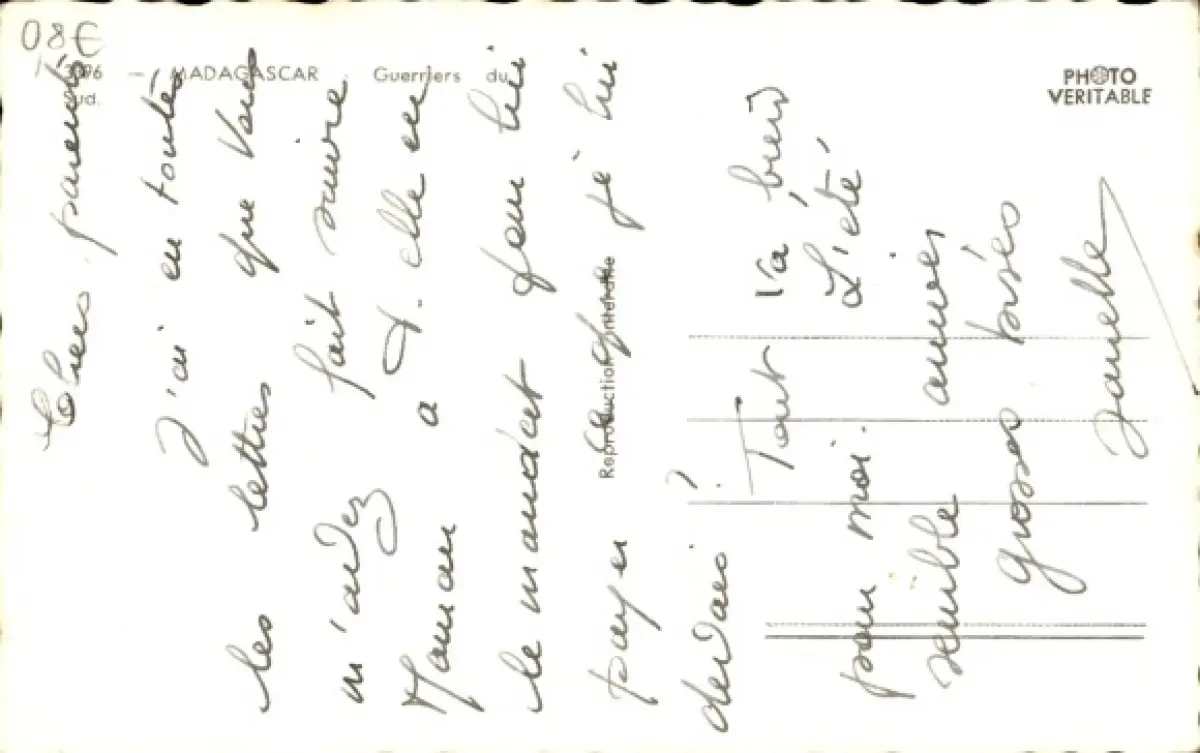 08€
3096 — MADAGASCAR Guerriers du
Sud.
PHOTO
VERITABLE
Reproduction Interdite
Chers parents
J'ai eu toutes
les lettres que vous
m'avez fait suivre
Maman a t. elle eu
le mandat pour lui
payer ce que je lui
devais ?
Tout va bien
pour moi. L'été
semble arriver
grosses bises